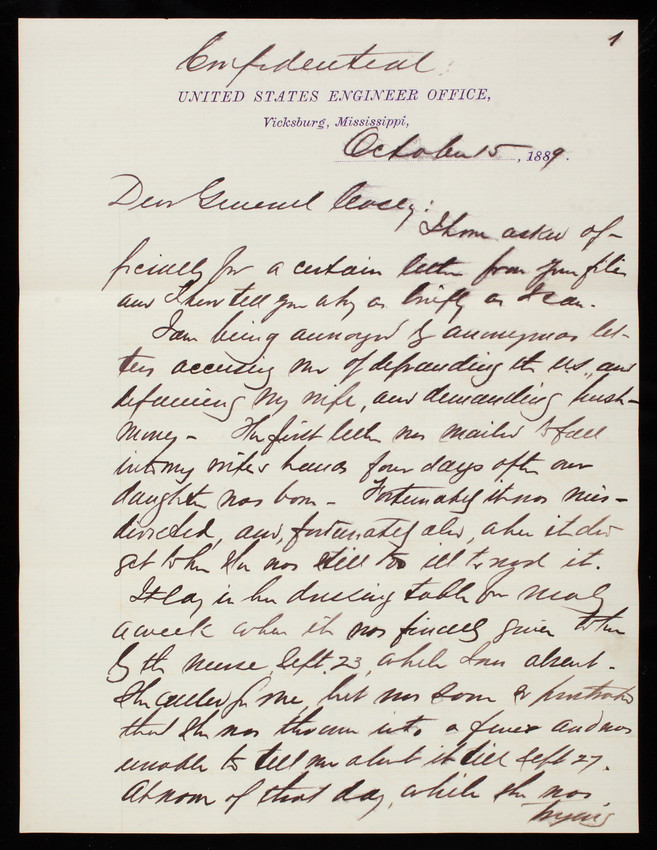 1
Confidential
UNITED STATES ENGINEER OFFICE,
Vicksburg, Mississippi,
October 15, 1889.
Dear General Casey:
I have asked of-
ficially for a certain letter from your files
and I here tell you why as briefly as I can.
I am being annoyed by anonymous let-
ters accusing me of defrauding the U.S., and
defaming my wife, and demanding hush-
money - The first letter was mailed to fall
into my wife's hands four days after our
daughter was born - Fortunately it was mis-
directed, and, fortunately also, when it did
get to her she was still too ill to read it.
It lay in her dressing table for nearly
a week when it was finally given to her
by the nurse, Sept. 23, while I was absent.
She called for me, but was soon so prostrated
that she was thrown into a fever and was
unable to tell me about it till Sept 27.
At noon of that day, while she was
trying